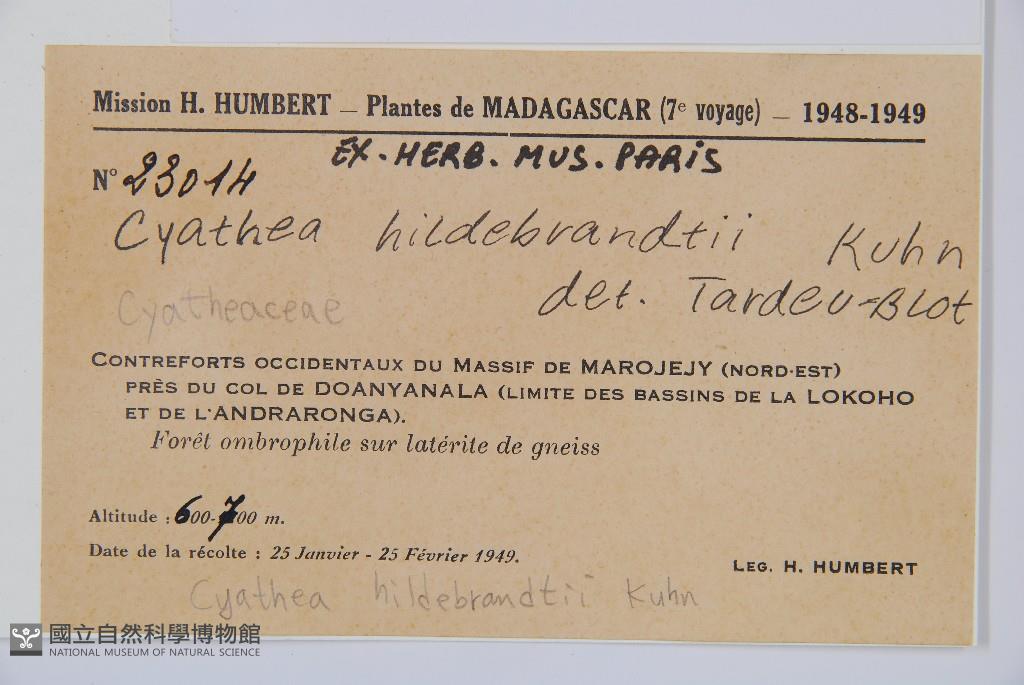 Mission H. HUMBERT — Plantes de MADAGASCAR (7e voyage) — 1948-1949
EX. HERB. MUS. PARIS
N° 23014
Cyathea hildebrandtii Kuhn
det. Tardeu-Blot
Cyatheaceae
CONTREFORTS OCCIDENTAUX DU MASSIF DE MAROJEJY (NORD-EST)
PRÈS DU COL DE DOANYANALA (LIMITE DES BASSINS DE LA LOKOHO
ET DE L'ANDRARONGA).
Forêt ombrophile sur latérite de gneiss
Altitude : 600-700 m.
Date de la récolte : 25 Janvier - 25 Février 1949.
LEG. H. HUMBERT
Cyathea hildebrandtii Kuhn
國立自然科學博物館
NATIONAL MUSEUM OF NATURAL SCIENCE